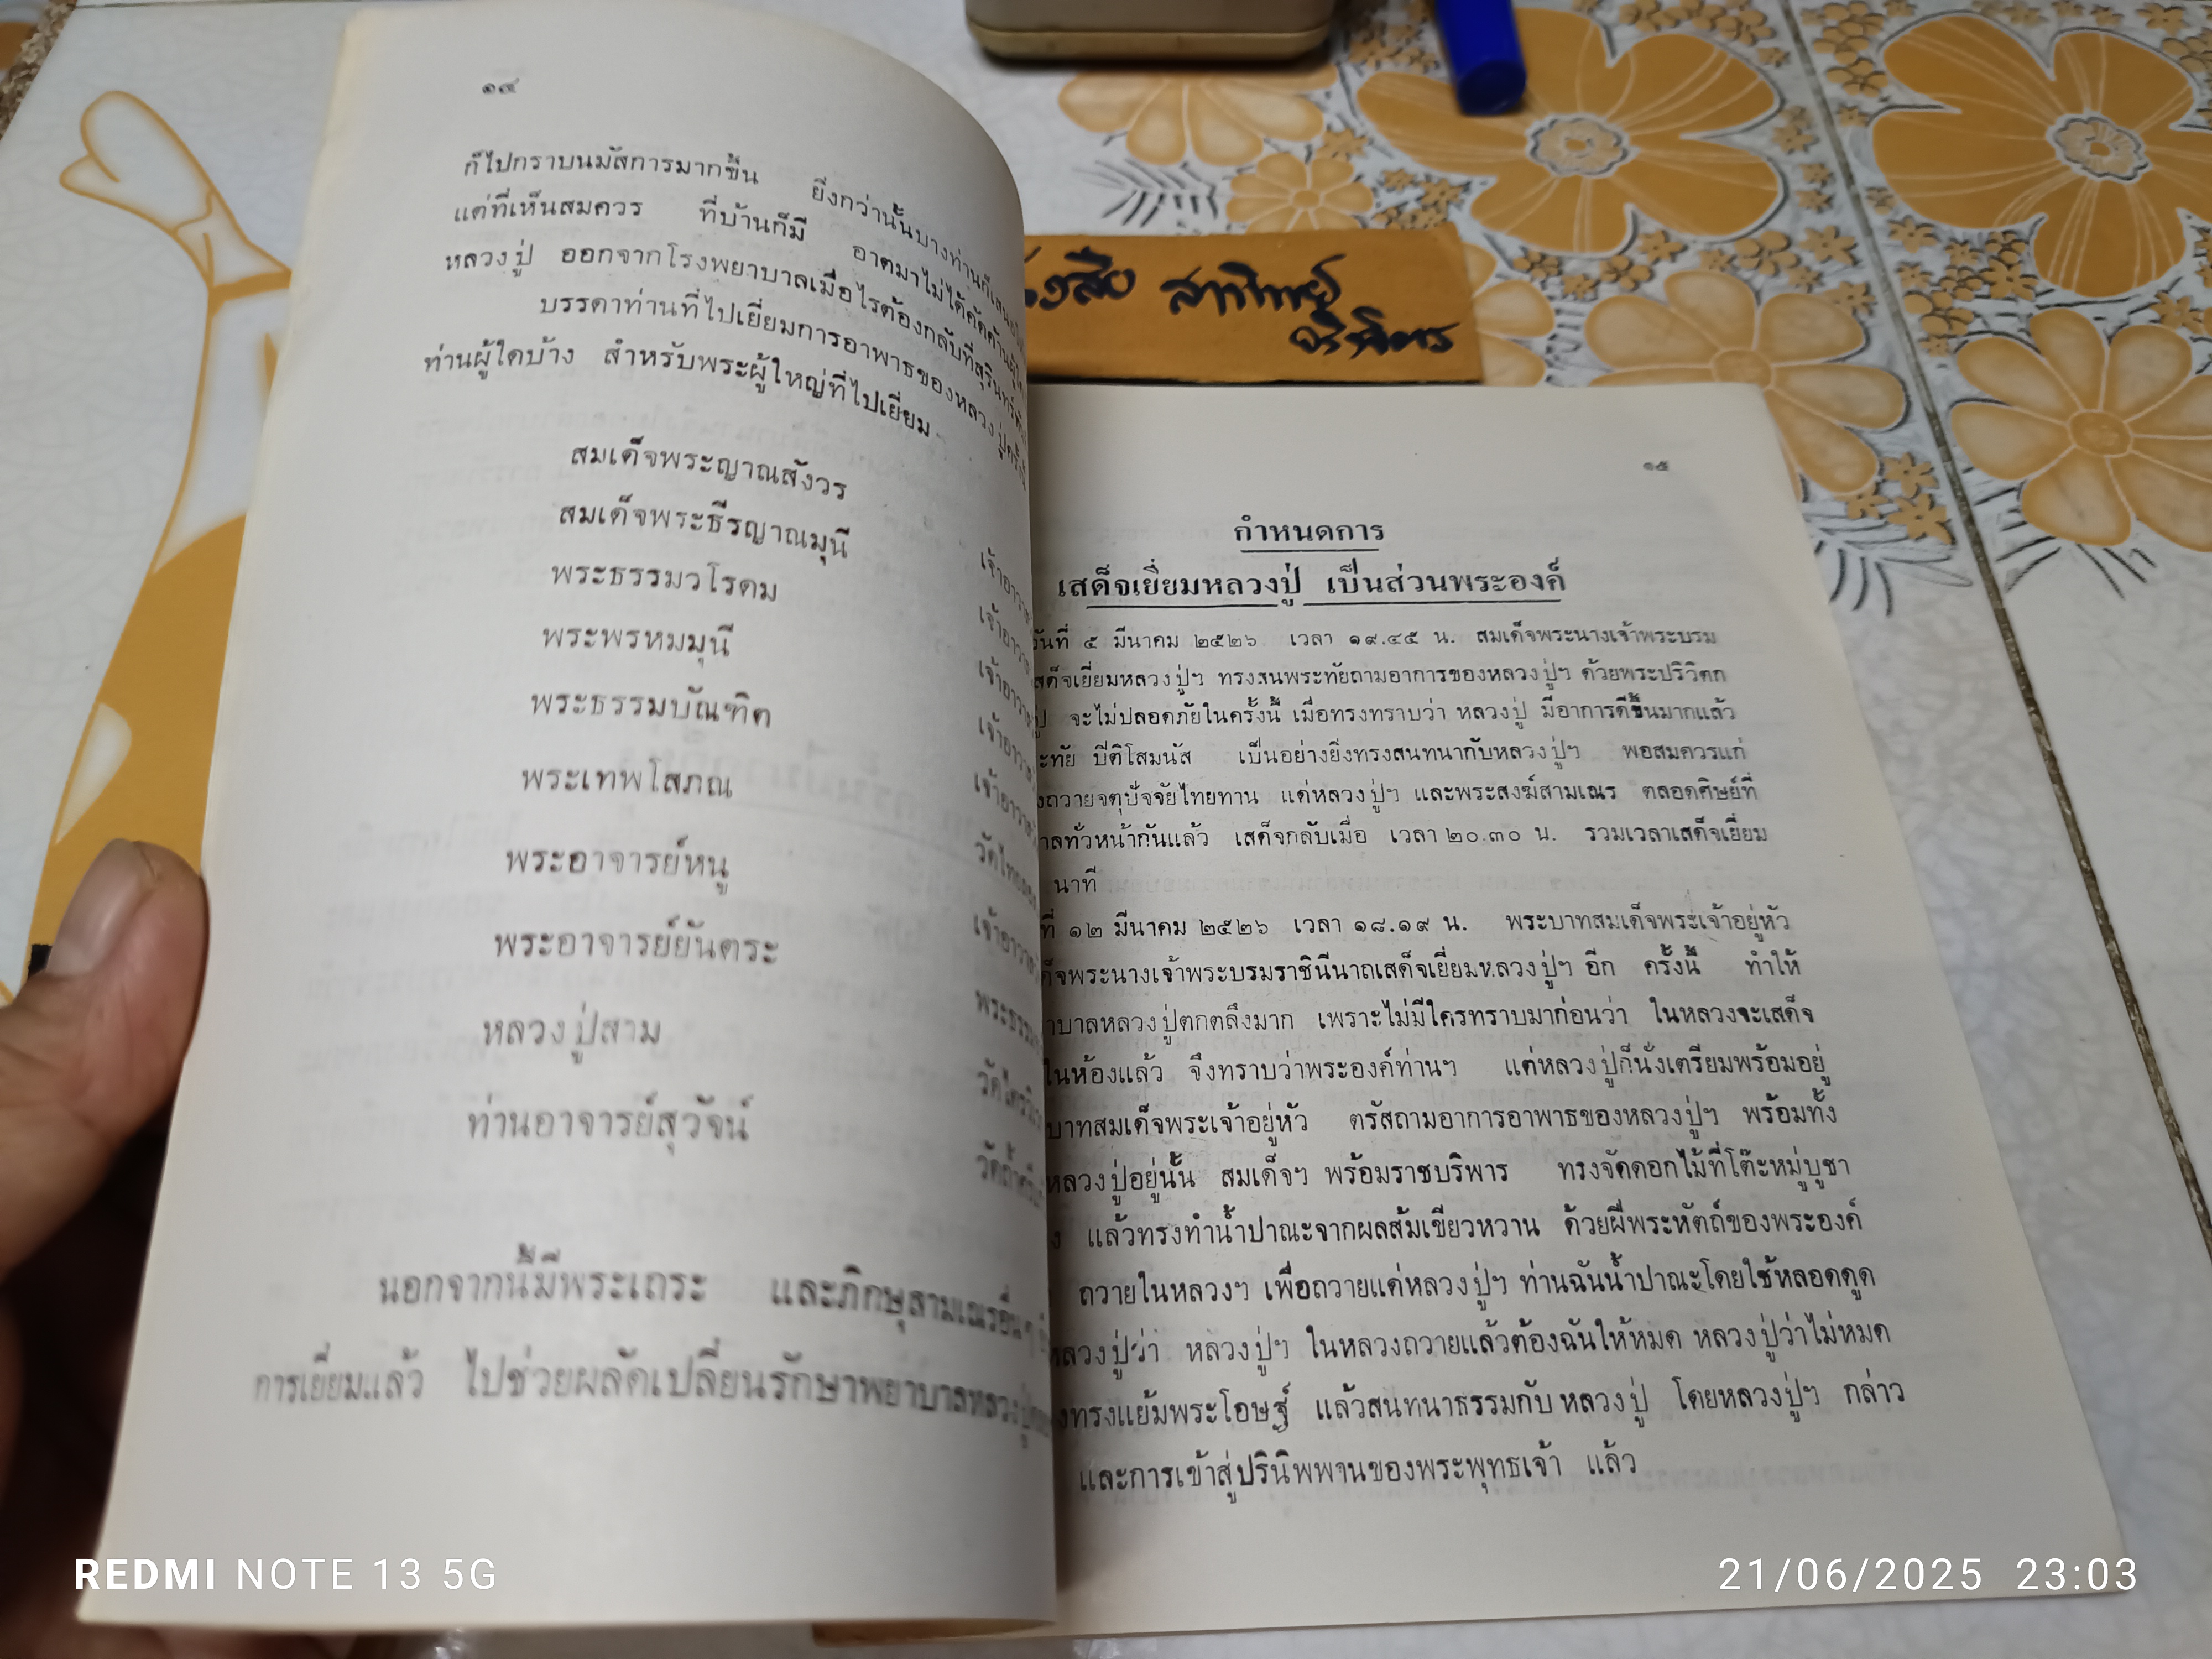 ๑๔
ก็ไปกราบนมัสการมากขึ้น ยิ่งกว่านั้นบางท่านก็เสนอ
แต่ที่เห็นสมควร ที่บ้านก็มี อาตมาไม่ได้คัดค้านผู้ใด
หลวงปู่ ออกจากโรงพยาบาลเมื่อไรต้องกลับที่สุรินทร์
บรรดาท่านที่ไปเยี่ยมการอาพาธของหลวงปู่ครั้งนี้
ท่านผู้ใดบ้าง สำหรับพระผู้ใหญ่ที่ไปเยี่ยม
สมเด็จพระญาณสังวร เจ้าอาวาส
สมเด็จพระธีรญาณมุนี เจ้าอาวาส
พระธรรมวโรดม เจ้าอาวาส
พระพรหมมุนี เจ้าอาวาส
พระธรรมบัณฑิต เจ้าอาวาส
พระเทพโสภณ
พระอาจารย์หนู เจ้าอาวาส
พระอาจารย์ยันตระ
หลวงปู่สาม
ท่านอาจารย์สุวัจน์
นอกจากนี้มีพระเถระ และภิกษุสามเณรอื่นๆ
การเยี่ยมแล้ว ไปช่วยผลัดเปลี่ยนรักษาพยาบาลหลวงปู่
สาทิพย์
๑๕
กำหนดการ
เสด็จเยี่ยมหลวงปู่ เป็นส่วนพระองค์
วันที่ ๕ มีนาคม ๒๕๒๖ เวลา ๑๙.๔๕ น. สมเด็จพระนางเจ้าพระบรม
เสด็จเยี่ยมหลวงปู่ฯ ทรงสนพระทัยถามอาการของหลวงปู่ฯ ด้วยพระปริวิตก
ปู่ จะไม่ปลอดภัยในครั้งนี้ เมื่อทรงทราบว่า หลวงปู่ มีอาการดีขึ้นมากแล้ว
ะทัย ปีติโสมนัส เป็นอย่างยิ่งทรงสนทนากับหลวงปู่ฯ พอสมควรแก่
งถวายจตุปัจจัยไทยทาน แด่หลวงปู่ฯ และพระสงฆ์สามเณร ตลอดศิษย์ที่
าลทั่วหน้ากันแล้ว เสด็จกลับเมื่อ เวลา ๒๐.๓๐ น. รวมเวลาเสด็จเยี่ยม
นาที
ที่ ๑๒ มีนาคม ๒๕๒๖ เวลา ๑๘.๑๙ น. พระบาทสมเด็จพระเจ้าอยู่หัว
ด็จพระนางเจ้าพระบรมราชินีนาถเสด็จเยี่ยมหลวงปู่ฯ อีก ครั้งนี้ ทำให้
าบาลหลวงปู่ตกตลึงมาก เพราะไม่มีใครทราบมาก่อนว่า ในหลวงจะเสด็จ
ในห้องแล้ว จึงทราบว่าพระองค์ท่านฯ แต่หลวงปู่ก็นั่งเตรียมพร้อมอยู่
บาทสมเด็จพระเจ้าอยู่หัว ตรัสถามอาการอาพาธของหลวงปู่ฯ พร้อมทั้ง
หลวงปู่อยู่นั้น สมเด็จฯ พร้อมราชบริพาร ทรงจัดดอกไม้ที่โต๊ะหมู่บูชา
ง แล้วทรงทำน้ำปาณะจากผลส้มเขียวหวาน ด้วยฝีพระหัตถ์ของพระองค์
ถวายในหลวงฯ เพื่อถวายแด่หลวงปู่ฯ ท่านฉันน้ำปาณะโดยใช้หลอดดูด
หลวงปู่ว่า หลวงปู่ฯ ในหลวงถวายแล้วต้องฉันให้หมด หลวงปู่ว่าไม่หมด
งทรงแย้มพระโอษฐ์ แล้วสนทนาธรรมกับ หลวงปู่ โดยหลวงปู่ฯ กล่าว
และการเข้าสู่ปรินิพพานของพระพุทธเจ้า แล้ว
REDMI NOTE 13 5G
21/06/2025 23:03